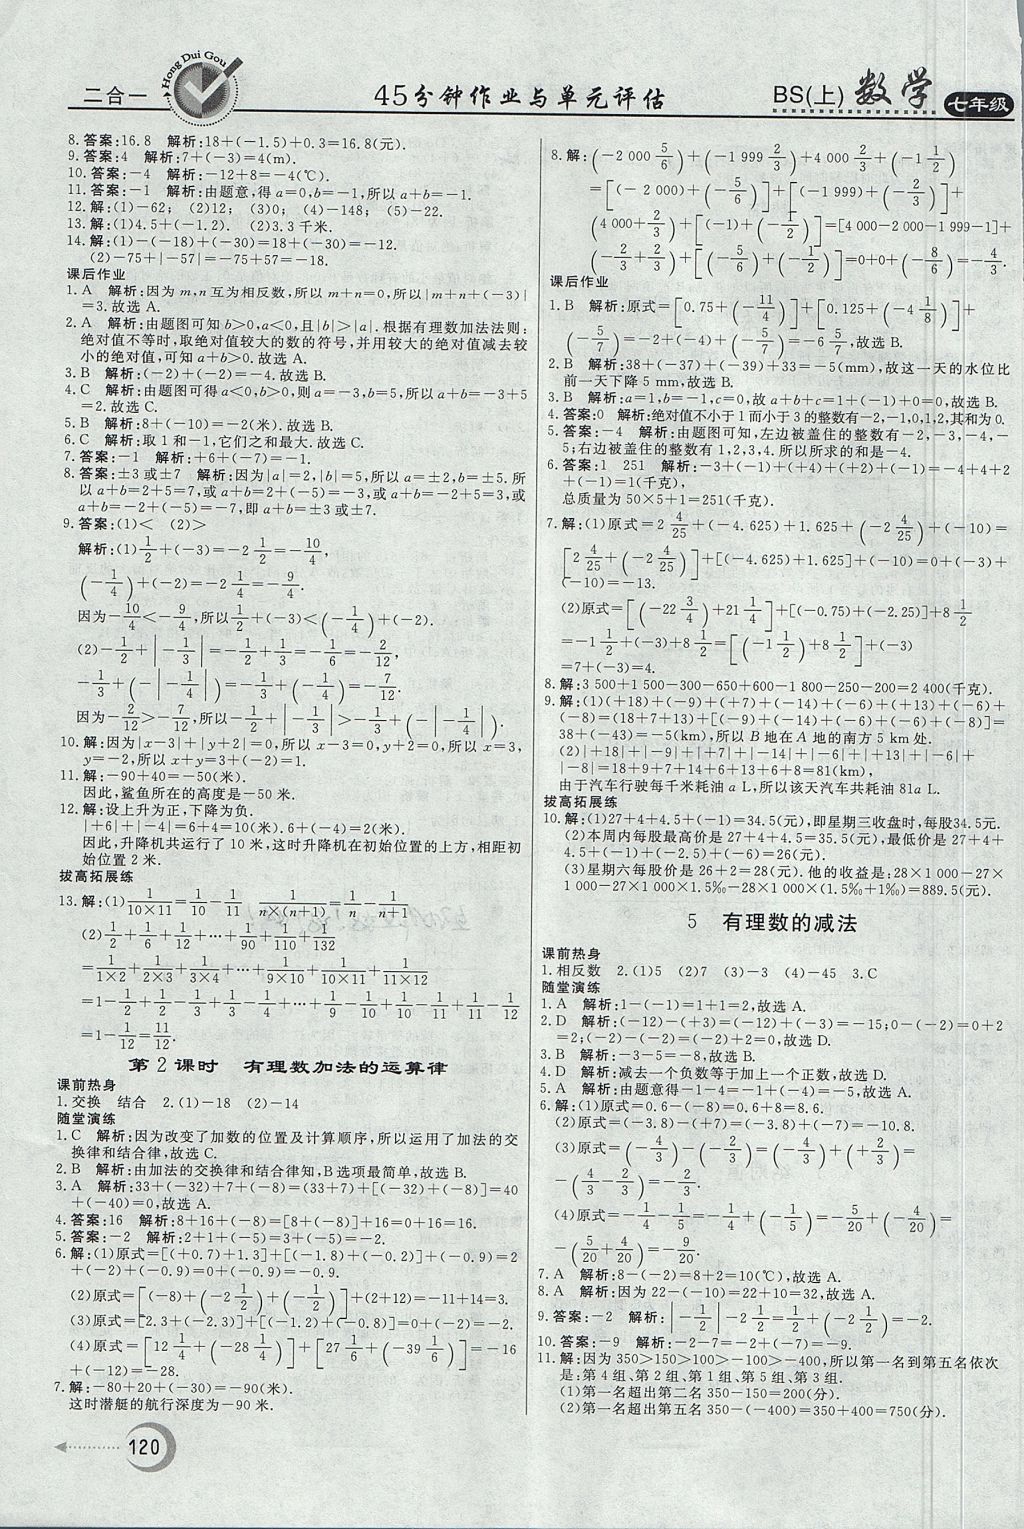 二合一
Hong Dui Gou
45分钟作业与单元评估
BS(上) 数学 七年级
8. 答案:16.8 解析:18+(-1.5)+0.3=16.8(元).
9. 答案:4 解析:7+(-3)=4(m).
10. 答案:-4 解析:-12+8=-4(℃).
11. 答案:-1 解析:由题意,得a=0,b=-1,所以a+b=-1.
12. 解:(1)-62; (2)12; (3)0; (4)-148; (5)-22.
13. 解:(1)4.5+(-1.2). (2)3.3千米.
14. 解:(1)-(-18)+(-30)=18+(-30)=-12.
(2)-75+|-57|=-75+57=-18.
课后作业
1. A 解析:因为m,n互为相反数,所以m+n=0,所以|m+n+(-3)|
=3.故选A.
2. A 解析:由题图可知b>0,a<0,且|b|>|a|.根据有理数加法法则:
绝对值不等时,取绝对值较大的数的符号,并用较大的绝对值减去较
小的绝对值,可知a+b>0.故选A.
3. B 解析:(-2)+(-2)=-4.故选B.
4. C 解析:由题图可得a<0,b>0,则a=-3,b=5,所以a+b=-3+5
=2.故选C.
5. B 解析:8+(-10)=-2(米).故选B.
6. C 解析:取1和-1,它们之和最大.故选C.
7. 答案:-1 解析:+6+(-7)=-1.
8. 答案:±3或±7 解析:因为|a|=2,|b|=5,所以a=±2,b=±5.所
以a+b=2+5=7,或a+b=2+(-5)=-3,或a+b=-2+5=3,或
a+b=-2+(-5)=-7,即a+b=±3或±7.
9. 答案:(1)< (2)>
解析:(1)1/2+(-3)=-2 1/2=-10/4,
(-1/4)+(-2)=-2 1/4=-9/4.
因为-10/4<-9/4,所以1/2+(-3)<(-1/4)+(-2).
(2)-1/2+|-1/3|=-1/2+1/3=-1/6=-2/12,
-1/3+(-|-1/4|)=-1/3+(-1/4)=-7/12.
因为-2/12>-7/12,所以-1/2+|-1/3|>-1/3+(-|-1/4|).
10. 解:因为|x-3|+|y+2|=0,所以x-3=0,y+2=0,所以x=3,
y=-2,所以x+y=3+(-2)=1.
11. 解:-90+40=-50(米).
因此,鲨鱼所在的高度是-50米.
12. 解:设上升为正,下降为负.
|+6|+|-4|=6+4=10(米).6+(-4)=2(米).
因此,升降机共运行了10米,这时升降机在初始位置的上方,相距初
始位置2米.
拔高拓展练
13. 解:(1)1/(10×11)=1/10-1/11 1/(n×(n+1))=1/n-1/(n+1)
(2)1/2+1/6+1/12+…+1/90+1/110+1/132
=1/(1×2)+1/(2×3)+1/(3×4)+…+1/(9×10)+1/(10×11)+1/(11×12)
=1-1/2+1/2-1/3+1/3-1/4+…+1/9-1/10+1/10-1/11+1/11-1/12
=1-1/12=11/12.
第2课时 有理数加法的运算律
课前热身
1. 交换 结合 2.(1)-18 (2)-14
随堂演练
1. C 解析:因为改变了加数的位置及计算顺序,所以运用了加法的交
换律和结合律,故选C.
2. B 解析:由加法的交换律和结合律知,B选项最简单,故选B.
3. A 解析:33+(-32)+7+(-8)=(33+7)+[(-32)+(-8)]=40
+(-40)=0,故选A.
4. 答案:16 解析:8+16+(-8)=[8+(-8)]+16=0+16=16.
5. 答案:-2 解析:2+1+(-5)=3+(-5)=-2.
6. 解:(1)原式=[(+0.7)+1.3]+[(-1.8)+(-0.2)]+(-0.9)=2
+(-2)+(-0.9)=0+(-0.9)=-0.9.
(2)原式=[(-8)+(-2 1/2)+(-1/2)]+(2+12)=-11+14=3.
(3)原式=[2.3+(-2.3)]+[(-1.2)+(-0.8)]=0+(-2)=-2.
(4)原式=[12 1/4+(-28 1/4)]+[27 1/6+(-39 1/6)]=-16
+(-12)=-28.
7. 解:-80+20+(-30)=-90(米).
这时潜艇的航行深度为-90米.
120
8. 解:(-2 000 5/6)+(-1 999 2/3)+4 000 2/3+(-1 1/2)
=[(-2 000)+(-5/6)]+[(-1 999)+(-2/3)]+
(4 000+2/3)+[(-1)+(-1/2)]=[4 000-2 000-1 999-1]+
(-2/3+2/3)+[(-5/6)+(-1/2)]=0+0+(-8/6)=-4/3.
课后作业
1. B 解析:原式=[0.75+(-11/4)]+[0.125+(-4 1/8)]+
(-5/7)=-2+(-4)+(-5/7)=-6 5/7,故选B.
2. B 解析:38+(-37)+(-39)+33=-5(mm),故这一天的水位比
前一天下降5 mm,故选B.
3. B 解析:a=1,b=-1,c=0,故a+b+c=1+(-1)+0=0,故选B.
4. 答案:0 解析:绝对值不小于1而小于3的整数有-2,-1,0,1,2,其和为0.
5. 答案:-4 解析:由题图可知,左边被盖住的整数有-2,-3,-4,-
5;右边被盖住的整数有1,2,3,4.所以所求的和是-4.
6. 答案:1 251 解析:-3+(-1)+(+4)+(+2)+(-1)=-4+4+2
+(-1)=1(千克),
总质量为50×5+1=251(千克).
7. 解:(1)原式=2 4/25+(-4.625)+1.625+(-2 4/25)+(-10)=
[2 4/25+(-2 4/25)]+[(-4.625)+1.625]+(-10)=0+(-3)+
(-10)=-13.
(2)原式=[(-22 3/4)+21 1/4]+[(-0.75)+(-2.25)]+8 1/2
=-1 1/2+(-3)+8 1/2=[(-1 1/2)+8 1/2]+(-3)
=7+(-3)=4.
8. 解:3 500+1 500-300-650+600-1 800-250-200=2 400(千克).
9. 解:(1)(+18)+(-9)+(+7)+(-14)+(-6)+(+13)+(-6)+
(-8)=(18+7+13)+[(-9)+(-14)+(-6)+(-6)+(-8)]=
38+(-43)=-5(km),所以B地在A地的南方5 km处.
(2)|+18|+|-9|+|+7|+|-14|+|-6|+|+13|+|-6|+
|-8|=18+9+7+14+6+13+6+8=81(km),
由于汽车行驶每千米耗油a L,所以该天汽车共耗油81a L.
拔高拓展练
10. 解:(1)27+4+4.5+(-1)=34.5(元),即星期三收盘时,每股34.5元.
(2)本周内每股最高价是27+4+4.5=35.5(元),最低价是27+4+
4.5+(-1)+(-2.5)+(-6)=26(元).
(3)星期六每股价是26+2=28(元).他的收益是:28×1 000-27
×1 000-27×1 000×1.5‰-28×1 000×(1.5‰+1‰)=889.5(元).
5 有理数的减法
课前热身
1. 相反数 2.(1)5 (2)7 (3)-3 (4)-45 3.C
随堂演练
1. A 解析:1-(-1)=1+1=2,故选A.
2. D 解析:(-12)-(+3)=(-12)+(-3)=-15;0-(-2)=0+2
=2;(-2)-(-2)=(-2)+2=0,故选D.
3. B 解析:-3-5=-8,故选B.
4. D 解析:减去一个负数等于加上一个正数,故选D.
5. A 解析:由题意得-1-4=-1+(-4)=-5,故选A.
6. 解:(1)原式=0.6-(-8)=0.6+8=8.6.
(2)原式=(-3.8)-(+7)=(-3.8)+(-7)=-10.8.
(3)原式=(-4/3)-(-2/3)=(-4/3)+(+2/3)=
-(4/3-2/3)=-2/3.
(4)原式=-1/4-1/5=-1/4+(-1/5)=-5/20+(-4/20)=
-(5/20+4/20)=-9/20.
7. A 解析:8-(-2)=8+2=10(℃),故选A.
8. A 解析:22-(-10)=22+10=32,故选A.
9. 答案:-2 解析:|-1/2|-2 1/2=1/2+(-2 1/2)=-2.
10. 答案:-9 解析:-2-7=-2+(-7)=-9.
11. 解:因为350>150>100>-100>-400,所以第一名到第五名依次
是:第4组、第2组、第1组、第5组、第3组.
(1)第一名超出第二名350-150=200(分).
(2)第一名超出第五名350-(-400)=350+400=750(分).